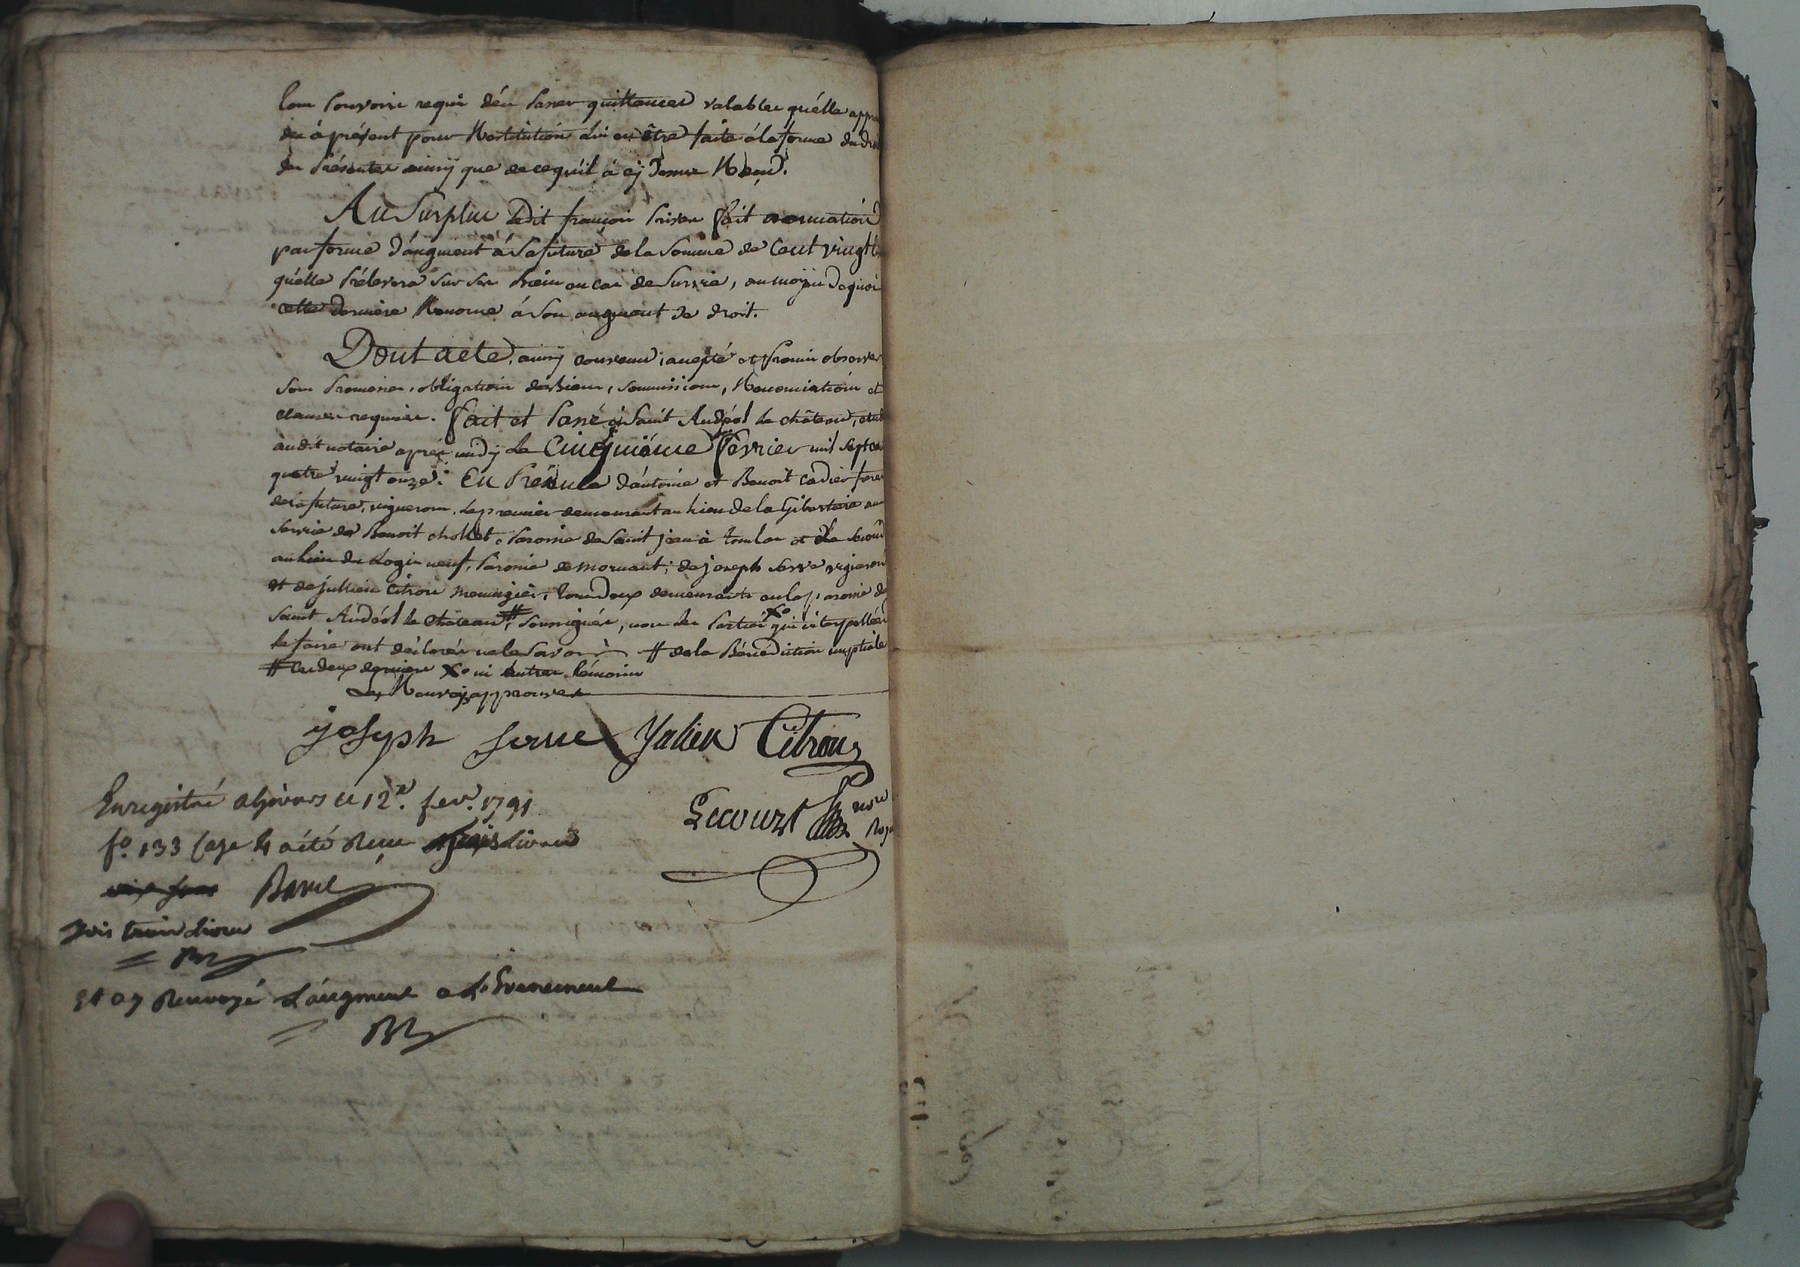 tous pouvoirs requis d'en passer quittances valables qu'elle app
dès à présent pour Restitution lui en être faite à la forme du dro
des présentes ainsy que de ce qu'il à cy dessus Reçu.
Au Surplus Ledit françois fait
par forme d'augment à Sa future de la Somme de Cent vingt
qu'elle prélevera Sur Ses biens en cas de Survie, au moyen de quoi
cette dernière Renonce à Son augment de droit.
Dont acte, ainsy convenu, accepté et promis observer
sous promesses, obligation de biens, soumissions, Renonciation et
clauses requises. Fait et Passé à Saint Andéol le château, étude
dudit notaire après midy Le Cinquième Février mil Sept cent
quatre vingt onze. En Présence d'antoine et Benoit Cadier freres
de la future, vignerons, le premier demeurant au lieu de la Gibertière au
service de Benoit chollet, Paroisse de Saint jean à toulas et le second
au lieu du Logis neuf, Paroisse de mornant; de joseph Serve vigneron
et de jullien Citron meunier, tous deux demeurants en la paroisse de
Saint Andéol le château, # soussignés, non les parties X° qui interpellées
de faire ont déclaré ne le savoir # de la Bénédiction nuptiale
# Ces deux derniers X° ni autres témoins
Les Renvois approuvés
joseph Serve Julien Citron
Lecourt nore Royal
Enregistré a givors ce 12e. fevr. 1791
fo. 133 Case 4 a été Reçu
Barel
trois Livres
Et ay Renvoyé L'augment a L'Evenement